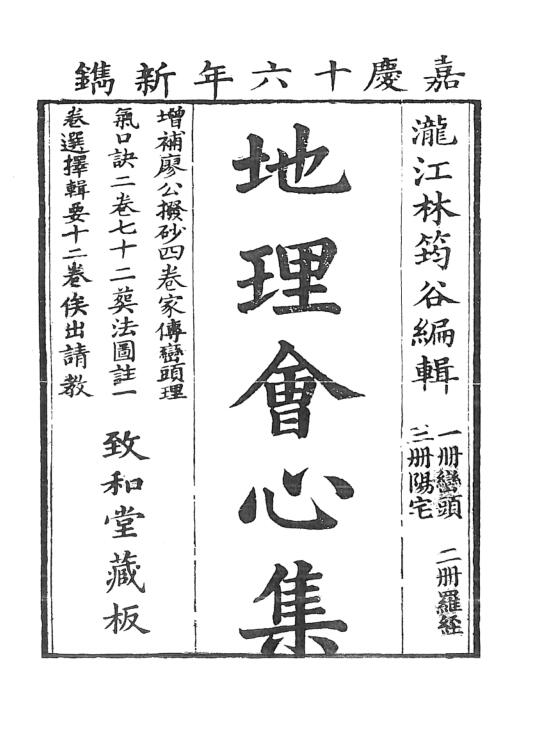 嘉慶十六年新鐫
瀧江林筠谷編輯
一册巒頭 二册羅經
三册陽宅
地理會心集
增補廖公撥砂四卷家傳巒頭理
氣口訣二卷七十二葬法圖註一
卷選擇輯要十二卷俟出請教
致和堂藏板